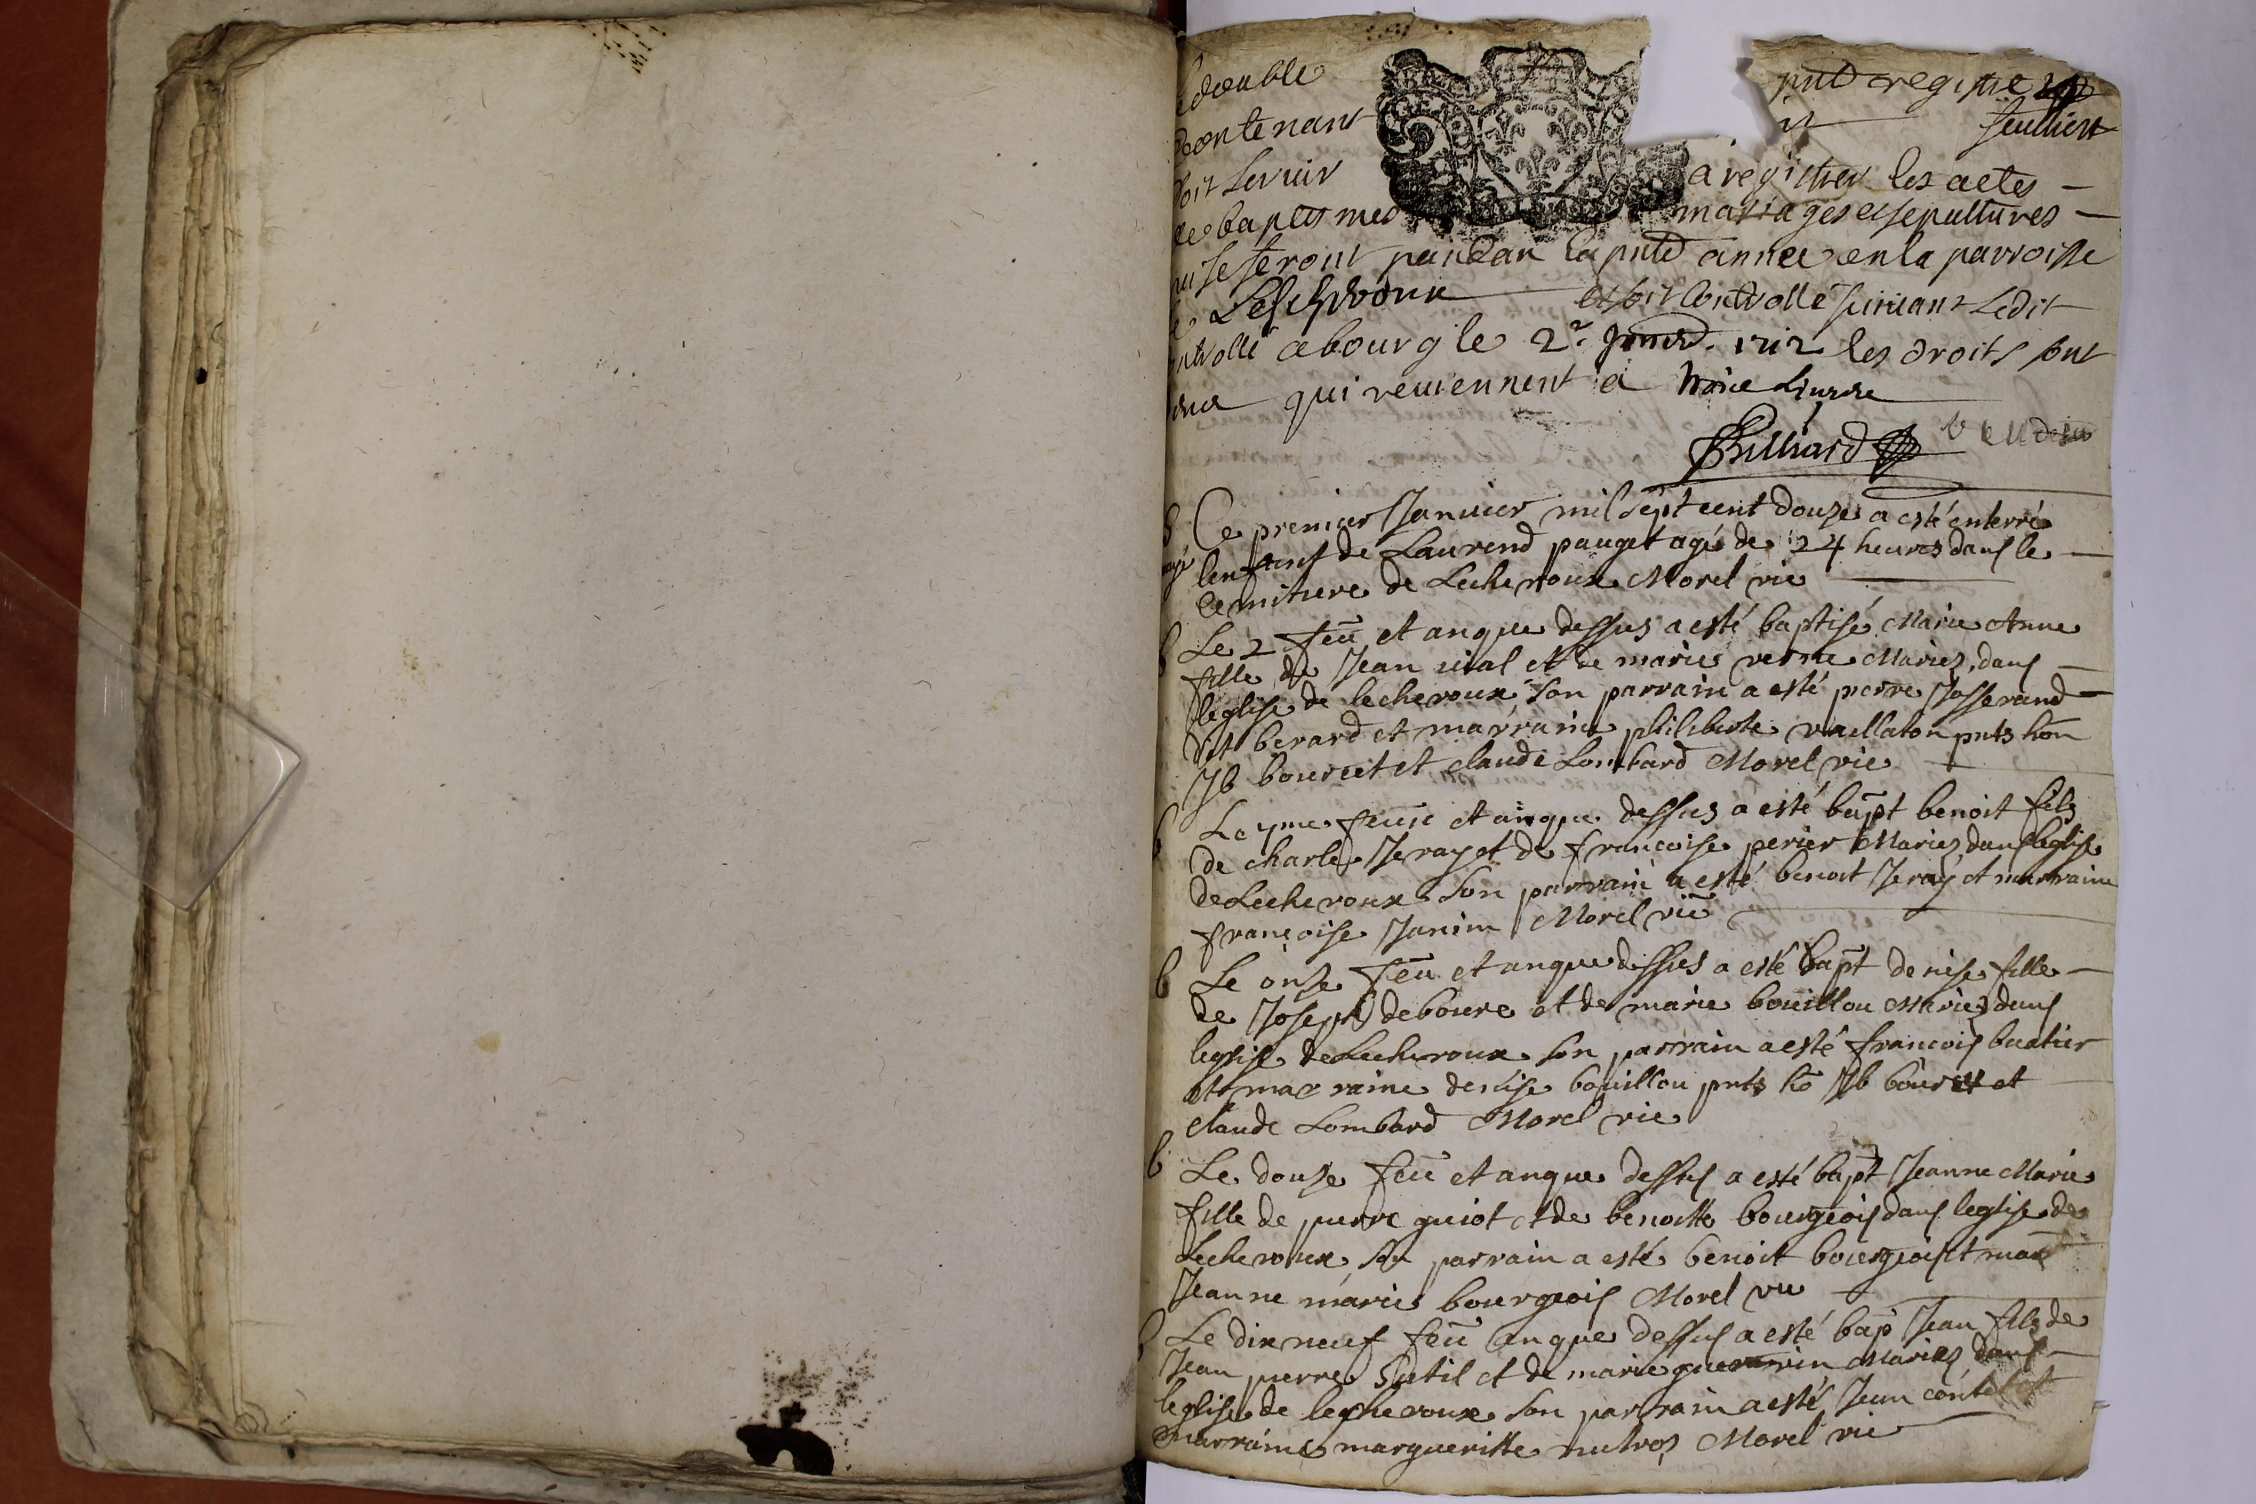 double pnt registre
contenant feuillets
doit servir a registrer les actes
de baptesmes mariages et sepultures
qui se feront pandan la pnte annee en la parroisse
Lescheroux et soit controllé suivant Ledit
controllé a bourg le 2e 1712 les droits sont
qui reviennent a livre
Billiard
Ce premier Janvier mil sept cent douze a esté enterré
lenfant de Laurend pauget agé de 24 heures dans le
cemitiere de Lecheroux Morel vic
b Le 2 feu et an que dessus a esté baptisé Marie Anne
fille de Jean vial et de marie verne Mariez dans
leglise de lecheroux son parrain a esté pierre Josserand
dit berard et marraine philiberte vaillaton pnts hon
Jb bourcet et claude Lombard Morel vic
b Le yme feu et an que dessus a esté bapt benoit fils
de charle Jeray et de francoise perier Mariez dans leglise
de Lecheroux Son parrain a esté benoit Jeray et marraine
françoise Janin Morel vic
b Le onze feu et an que dessus a esté bapt denise fille
de Joseph deboure et de marie bouillou Mariez dans
leglise de Lecheroux son parrain a esté francois buatier
et marraine denise bouillou pnts ho Jb bourcet et
claude Lombard Morel vic
b Le douze feu et an que dessus a esté bapt Jeanne Marie
fille de pierre guiot et de benoitte bourgeois dans leglise de
Lecheroux son parrain a esté benoit bourgeois et mar
Jeanne marie bourgeois Morel vic
b Le dix neuf feu an que dessus a esté bap Jean fils de
Jean pierre Sutil et de marie guerrin Mariez dans
leglise de lecheroux son parrain a esté Jean contet et
marraine margueritte Morel vic